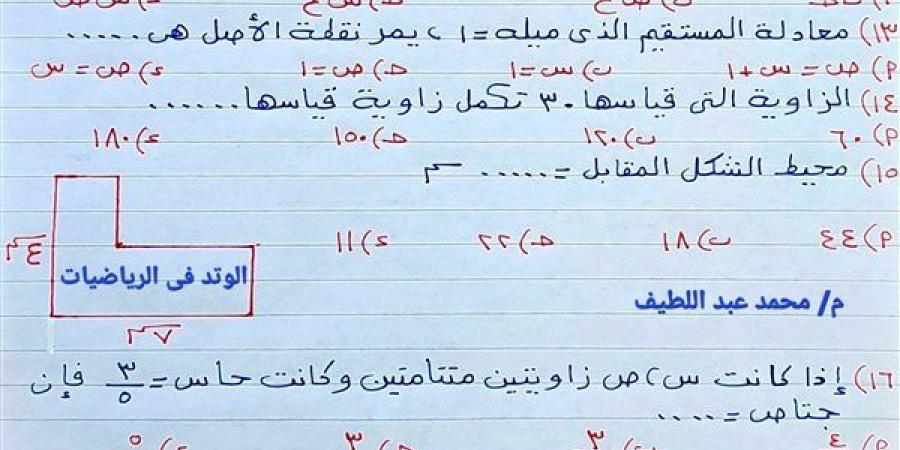 ١٣) معادلة المستقيم الذى ميله = ١ ، يمر نقطة الأصل هى .....
٢) ص = س + ١ ب) س = ١ حـ) ص = ١ ء) ص = س
١٤) الزاوية التى قياسها ٣٠ تكمل زاوية قياسها ......
٢) ٦٠ ب) ١٢٠ حـ) ١٥٠ ء) ١٨٠
١٥) محيط الشكل المقابل = ..... سم
٢) ٤٤ ب) ١٨ حـ) ٢٢ ء) ١١
٤ سم
الوتد فى الرياضيات
م/ محمد عبد اللطيف
٧ سم
١٦) إذا كانت س ، ص زاويتين متتامتين وكانت حاس = ٣/٥ فإن
جتاص = ....